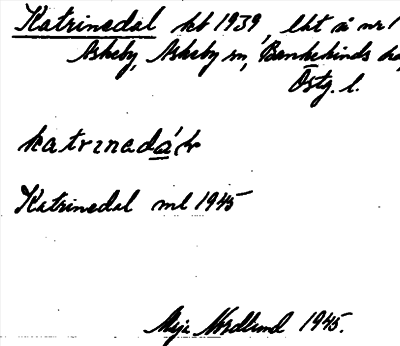 Katrinedal kb 1939, lht å nr 1
Askeby, Askeby sn, Bankekinds hd,
Östg. l.
katrinedá'l
Katrinedal ml 1945
Maja Nordlund 1945.